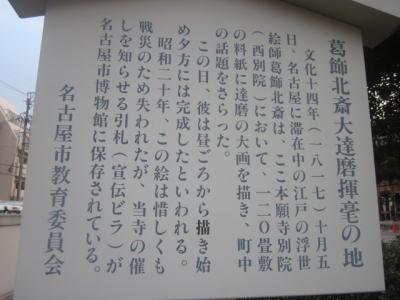 葛飾北斎大達磨揮毫の地
文化十四年(一八一七)十月五
日、名古屋に滞在中の江戸の浮世
絵師葛飾北斎は、ここ本願寺別院
(西別院)において、一二〇畳敷
の料紙に達磨の大画を描き、町中
の話題をさらった。
この日、彼は昼ごろから描き始
め夕方には完成したといわれる。
昭和二十年、この絵は惜しくも
戦災のため失われたが、当寺の催
しを知らせる引札(宣伝ビラ)が
名古屋市博物館に保存されている。
名古屋市教育委員会